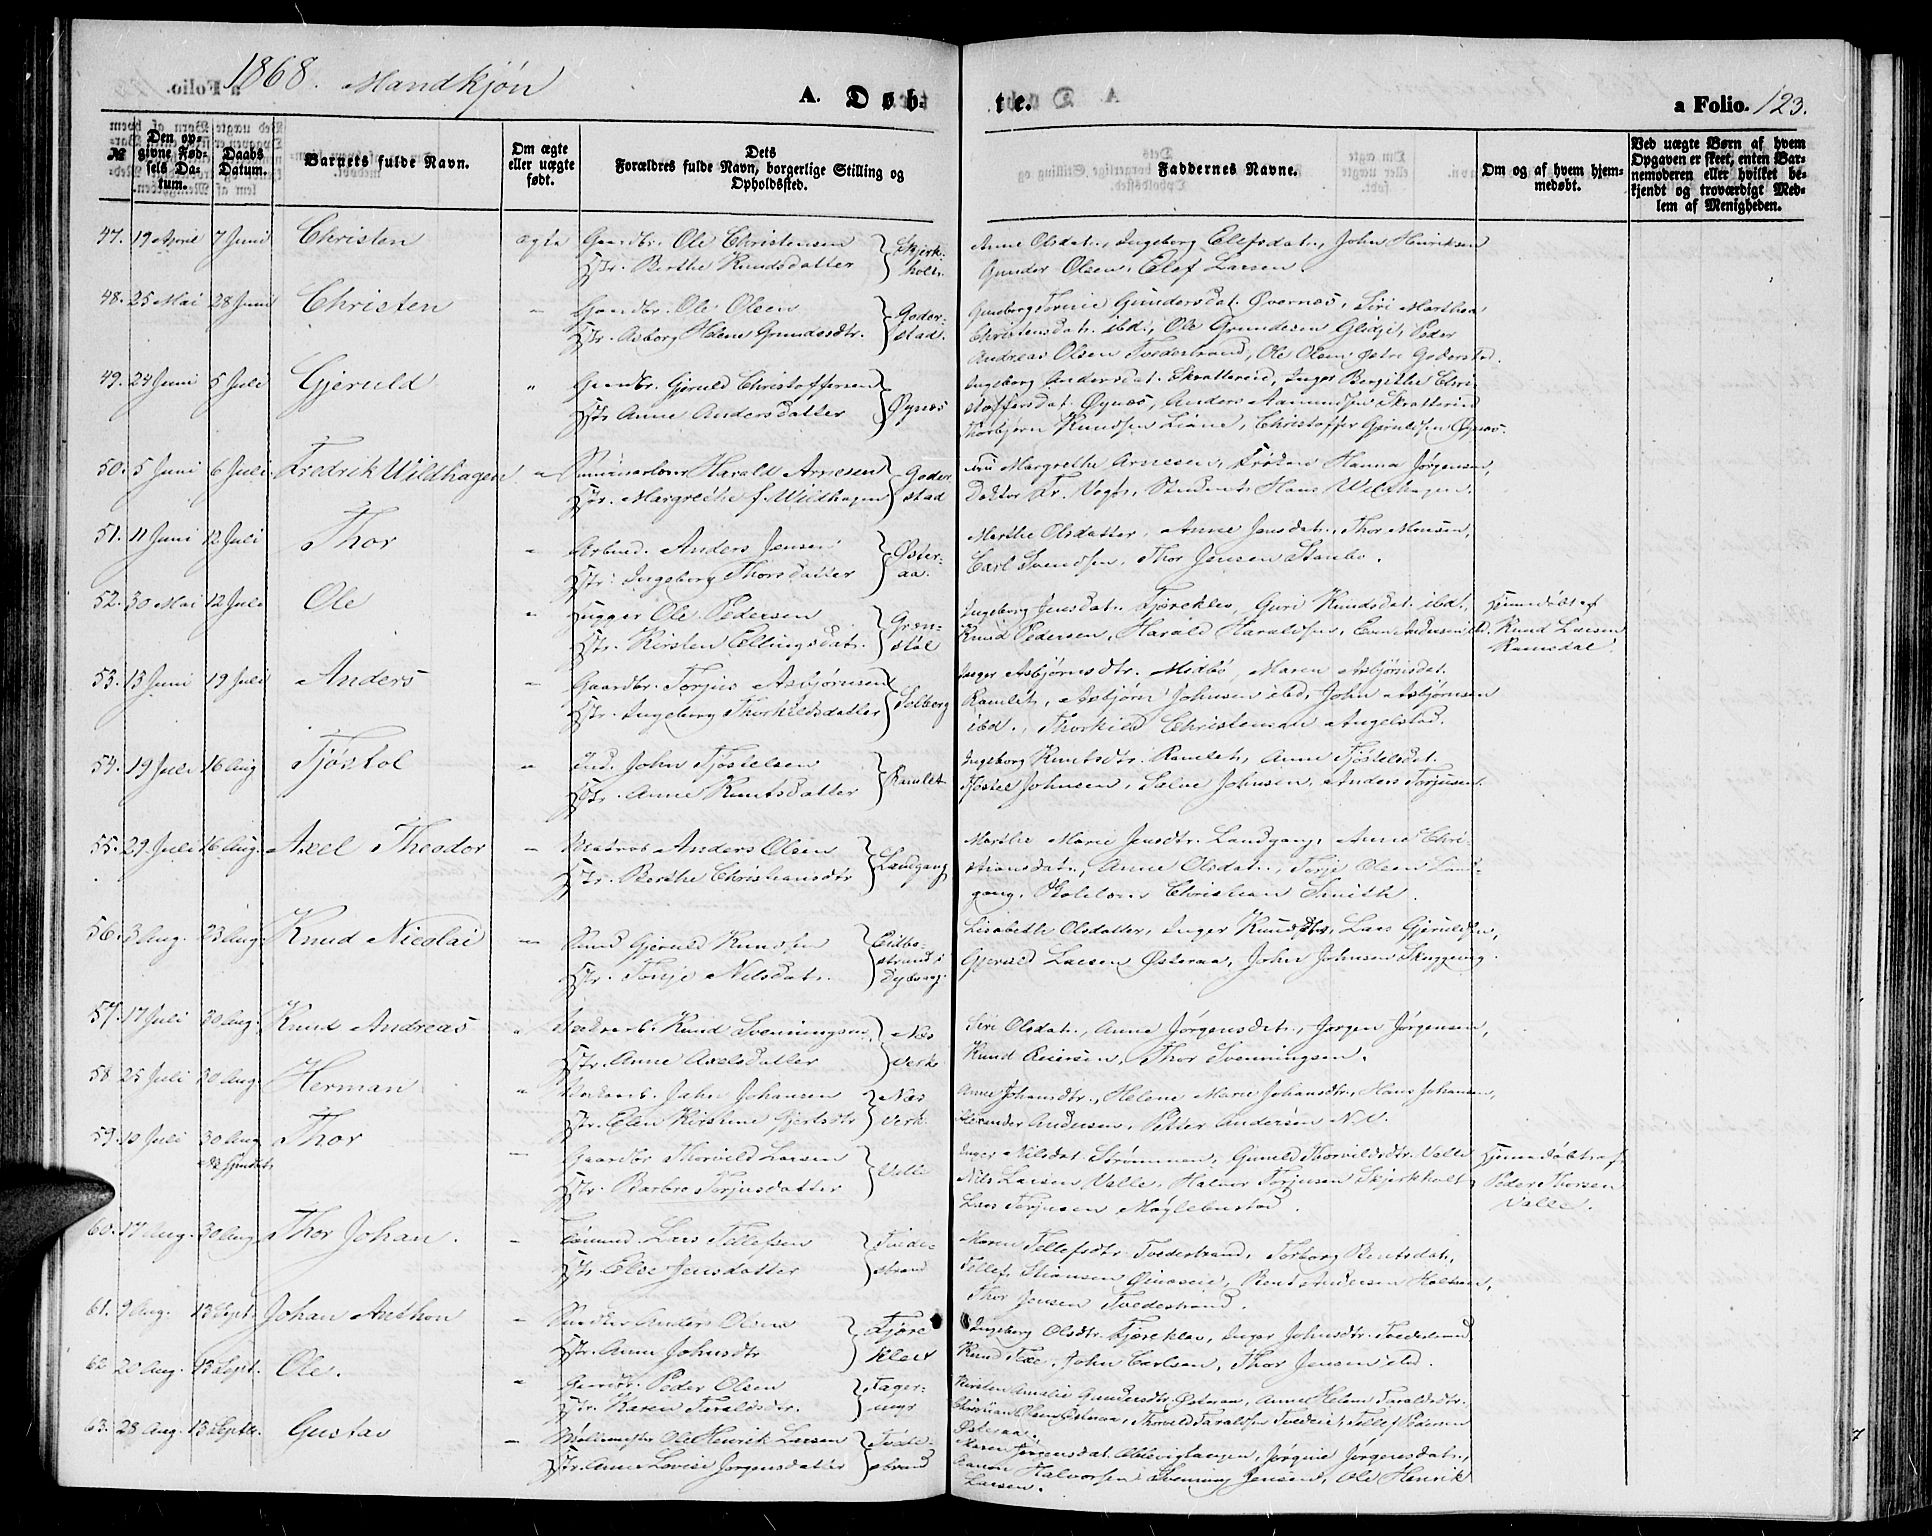 1868. Mandkjön
A. Døb-
te.
a Folio. 123.
№
Den op-
givne Fød-
sels Da-
tum.
Daabs
Datum.
Barnets fulde Navn.
Om ægte
eller uægte
født.
Dets
Forældres fulde Navn, borgerlige Stilling og
Opholdssted.
Faddernes Navne.
Om og af hvem hjem-
medøbt.
Ved uægte Børn af hvem
Opgaven er skeet, enten Bar-
nemoderen eller hvilket be-
kjendt og troværdigt Med-
lem af Menigheden.
47. 19 April 7 Juni Christen ægte Gaardbr. Ole Christensen Skjerk-
Htr. Berthe Knudsdatter holt.
Anne Olsdat., Ingeborg Ellefsdat., John Henriksen
Gunder Olsen, Elef Larsen.
48. 25 Mai 28 Juni Christen " Gaardbr. Ole Olsen Goder-
Htr. Asborg Helene Grundesdtr. stad.
Gundersdat. Øvernæs, Siri Marthea
Christensdat. ibd., Ole Grundesen Peder
Andreas Olsen Tvedestrand, Ole Olsen Østre Goderstad.
49. 24 Juni 5 Juli Gjeruld " Gaardbr. Gjeruld Christoffersen
Htr. Anne Andersdatter Øynæs
Ingeborg Andersdat. Skrattereid, Inger Bergithe Chri-
stoffersdat. Øynæs, Anders Aamundsen Skrattereid
Thorbjørn Knudsen Liane, Christoffer Gjeruldsen Øynæs.
50. 5 Juni 6 Juli Fredrik Wildhagen " Harald Arnesen Goder
Htr. Margrethe f. Wildhagen stad
Fru Margrethe Arnesen, Frøken Hanna Jørgensen,
Doktor Fr. Vogt, Student Hans Wildhagen.
51. 11 Juni 12 Juli Thor " Arbmd. Anders Jensen Øster-
Htr. Ingeborg Thorsdatter aa.
Marthe Olsdatter, Anne Jensdat., Thor Monsen,
Carl Svendsen, Thor Jensen Stambo.
52. 30 Mai 12 Juli Ole " Hugger Ole Pedersen Græn-
Htr. Kirsten Ellingsdat. støl
Ingeborg Jensdat. Fjæreklev, Guri Knudsdat. ibd.,
Knud Pedersen, Harald Haraldsen, Even Andersen ibd.
Hjemmedøbt af
Knud Larsen
Ramsdal.
53. 13 Juni 19 Juli Anders " Gaardbr. Torjus Asbjørnsen
Htr. Ingeborg Thorkildsdatter Solberg
Inger Asbjørnsdtr. Midbø, Maren Asbjørnsdat.
Ramlet, Asbjørn Johnsen ibd, John Asbjørnsen
ibd., Thorkild Christensen Angelstad.
54. 19 Juli 16 Aug Tjøstol " Ind. John Tjøstelsen
Htr. Anne Knutsdatter Ramlet
Ingeborg Knutsdtr. Ramlet, Anne Tjøstelsdat.
Tjøstel Johnsen, Salve Johnsen, Anders Torjusen.
55. 29 Juli 16 Aug. Axel Theodor " Matros Anders Olsen
Htr. Berthe Christiansdtr Landgang
Marthe Marie Jensdtr. Landgang, Anne Chri-
stiansdat., Anne Olsdat., Terje Olsen Land-
gang, Christian Smith.
56. 3 Aug. 23 Aug. Knud Nicolai " Gjeruld Knudsen Eidbo-
Htr. Tonje Nilsdat. strand i
Dybvaag.
Lisabeth Olsdatter, Inger Knudsdtr, Lars Gjeruldsen,
Gjeruld Larsen Østeraa, John Johnsen Skuggevig.
57. 17 Juli 30 Aug. Knud Andreas " Knud Svenningsen Næs
Htr. Anne Axelsdatter Verk.
Siri Olsdat., Anne Jørgensdat., Jørgen Jørgensen,
Knud Reiersen, Thor Svenningsen.
58 25 Juli 30 Aug. Herman " John Johansen Næs
Htr. Elen Kirstine Gjertsdtr Verk.
Anne Johansdtr., Helene Marie Johansdtr., Hans Johansen,
Andersen, Petter Andersen N.V.
59. 10 Juli 30 Aug Thor " Gaardbr Thorvild Larsen
Htr. Barbro Torjusdatter Valle
Inger Nilsdat Strømmen, Gunild Thorvildsdtr. Valle
Nils Larsen Valle, Halvor Torjusen Skjerkholt
Lars Torjusen Møglebustad.
Hjemmedøbt af
Peder Thorsen
Valle.
60. 17 Aug. 30 Aug Thor Johan. " Lars Tellefsen Tvede-
Htr Else Jensdatter strand
Maren Tellefsdtr. Tvedestrand, Torborg Bentsdat.,
Tellef Stiansen Bent Andersen
Thor Jensen Tvedestrand.
61. 9 Aug. 13 Sept. Johan Anthon " Anders Olsen Fjære
Htr. Anne Johnsdtr klev
Ingeborg Olsdtr. Fjæreklev, Inger Johnsdtr. Tvedestrand
Knud John Carlsen, Thor Jensen ibd.
62 20 Aug. 13 Sept. Ole. " Gaardbr. Peder Olsen Fager-
Htr. Karen Taraldsdtr. myr
Kirsten Amalie Gundersdtr Østeraa, Anne Helene Taraldsdtr.
Christian Olsen Østeraa, Tellef Pedersen
Østeraa.
63. 28 Aug. 13 Septbr. Gustav " Møllemester Ole Henrik Larsen Tvede-
Htr. Anne Lovise Jørgensdatter strand
Maren Jørgensdat. Jørgine Jørgensdat.,
Halvorsen, Svenning Jensen, Ole Henrik
Larsen.